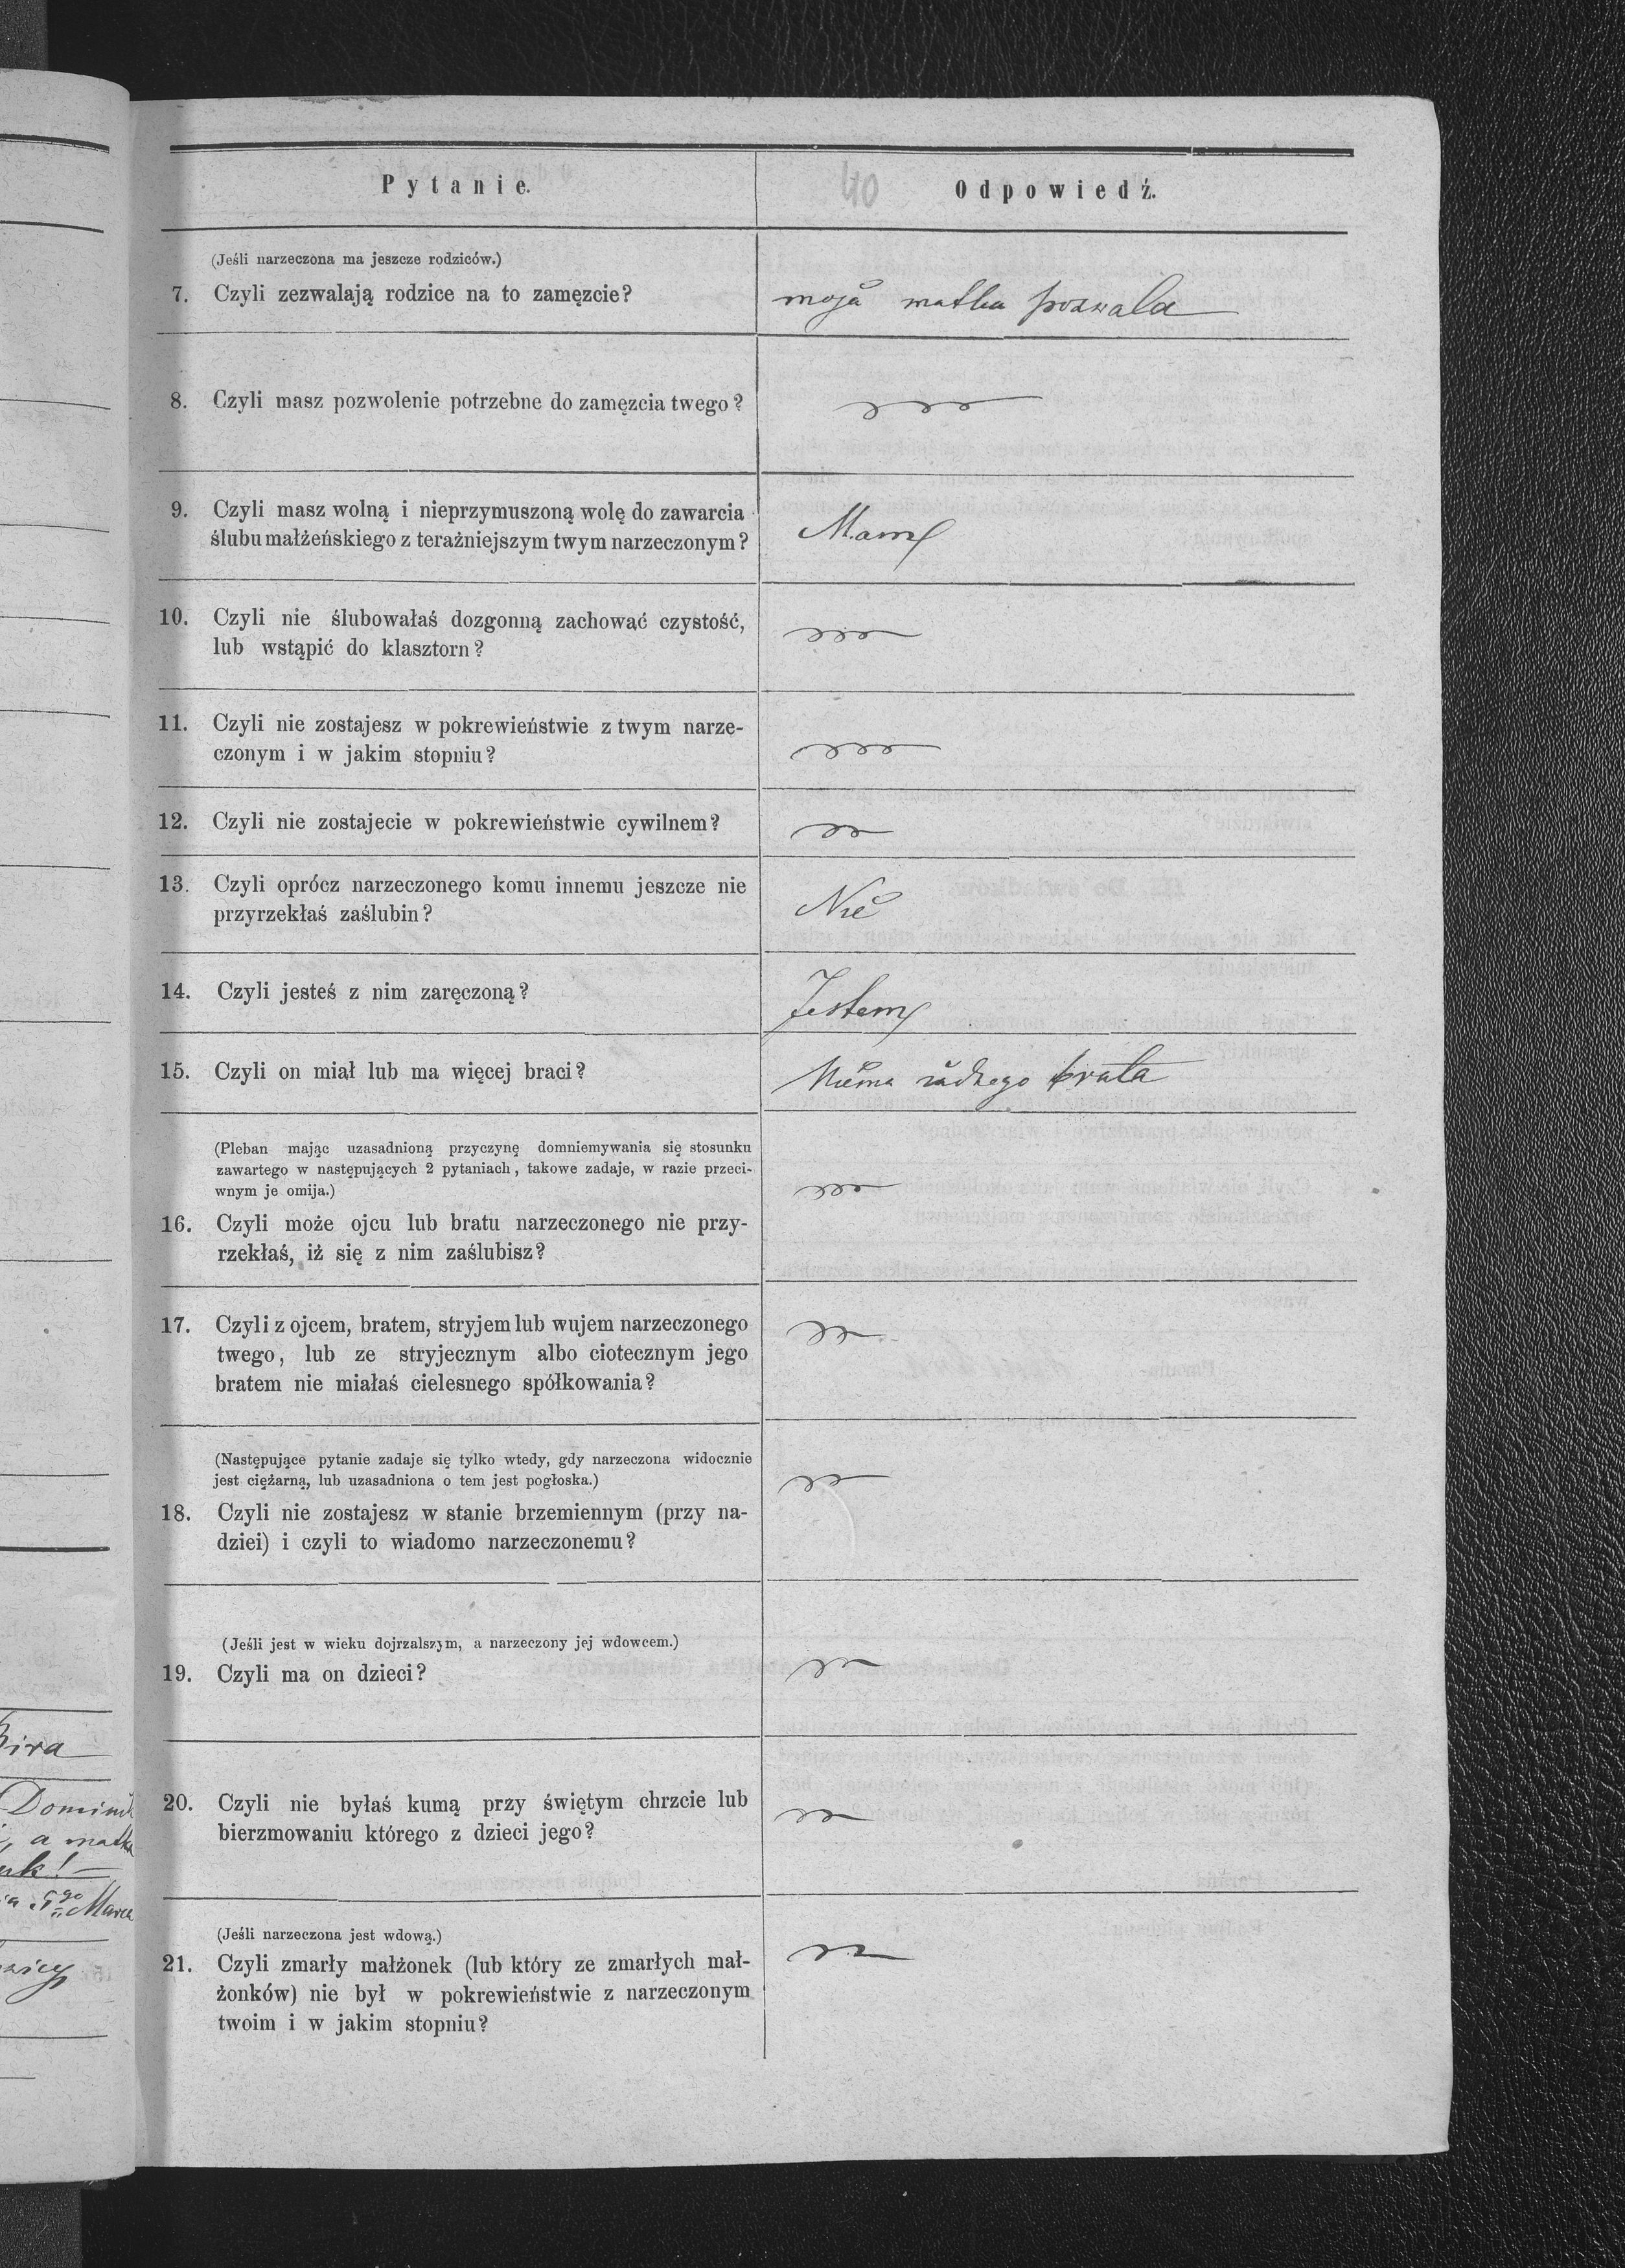 Pytanie.
40
Odpowiedź.
(Jeśli narzeczona ma jeszcze rodziców.)
7. Czyli zezwalają rodzice na to zamęzcie?
moja matka pozwala
8. Czyli masz pozwolenie potrzebne do zamęzcia twego?
9. Czyli masz wolną i nieprzymuszoną wolę do zawarcia
ślubu małżeńskiego z teraźniejszym twym narzeczonym?
Mam
10. Czyli nie ślubowałaś dozgonną zachować czystość,
lub wstąpić do klasztorn?
11. Czyli nie zostajesz w pokrewieństwie z twym narze-
czonym i w jakim stopniu?
12. Czyli nie zostajecie w pokrewieństwie cywilnem?
13. Czyli oprócz narzeczonego komu innemu jeszcze nie
przyrzekłaś zaślubin?
Nie
14. Czyli jesteś z nim zaręczoną?
Jestem
15. Czyli on miał lub ma więcej braci?
Niema żadnego brata
(Pleban mając uzasadnioną przyczynę domniemywania się stosunku
zawartego w następujących 2 pytaniach, takowe zadaje, w razie przeci-
wnym je omija.)
16. Czyli może ojcu lub bratu narzeczonego nie przy-
rzekłaś, iż się z nim zaślubisz?
17. Czyli z ojcem, bratem, stryjem lub wujem narzeczonego
twego, lub ze stryjecznym albo ciotecznym jego
bratem nie miałaś cielesnego spółkowania?
(Następujące pytanie zadaje się tylko wtedy, gdy narzeczona widocznie
jest ciężarną, lub uzasadniona o tem jest pogłoska.)
18. Czyli nie zostajesz w stanie brzemiennym (przy na-
dziei) i czyli to wiadomo narzeczonemu?
(Jeśli jest w wieku dojrzalszym, a narzeczony jej wdowcem.)
19. Czyli ma on dzieci?
20. Czyli nie byłaś kumą przy świętym chrzcie lub
bierzmowaniu którego z dzieci jego?
(Jeśli narzeczona jest wdową.)
21. Czyli zmarły małżonek (lub który ze zmarłych mał-
żonków) nie był w pokrewieństwie z narzeczonym
twoim i w jakim stopniu?
Domini
, a matka
Marca